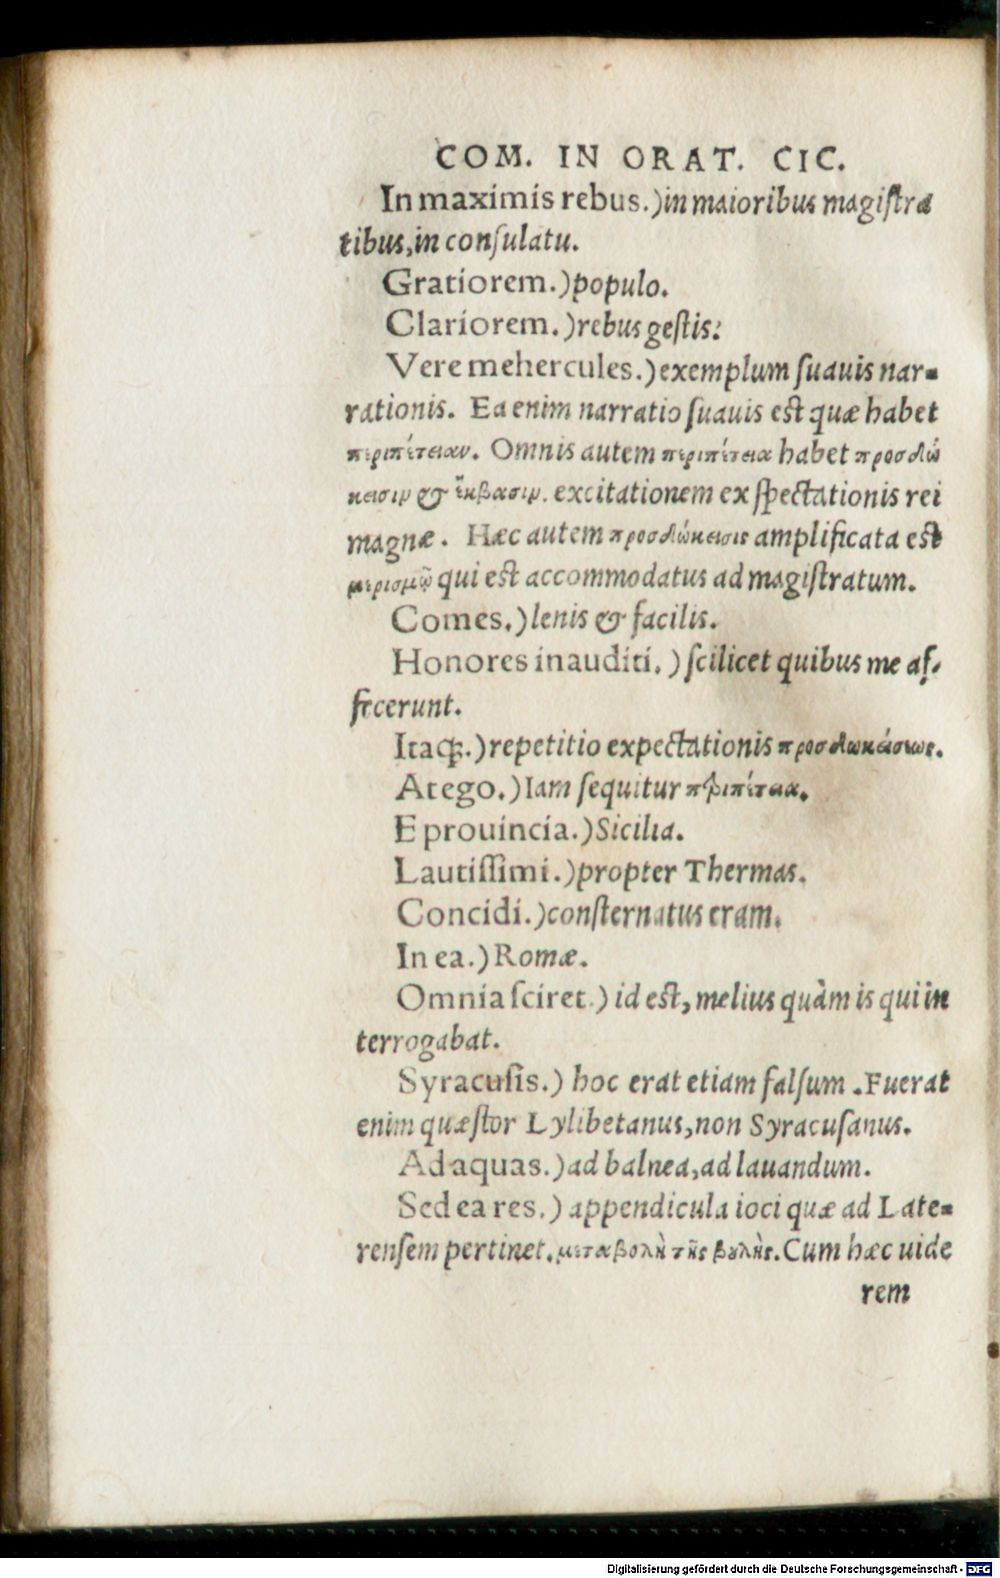 COM. IN ORAT. CIC.
In maximis rebus.) in maioribus magistra
tibus, in consulatu.
Gratiorem.) populo.
Clariorem.) rebus gestis:
Vere mehercules.) exemplum suauis nar-
rationis. Ea enim narratio suauis est quæ habet
περιπέτειαν. Omnis autem περιπέτεια habet προσδώ
κεισιν & ἔκβασιν. excitationem exspectationis rei
magnæ. Hæc autem προσδώκεισις amplificata est
μερισμῷ qui est accommodatus ad magistratum.
Comes.) lenis & facilis.
Honores inauditi.) scilicet quibus me af-
fecerunt.
Itaqȝ.) repetitio expectationis προσδωκείσεως.
At ego.) Iam sequitur περιπέτεια.
E prouincia.) Sicilia.
Lautissimi.) propter Thermas.
Concidi.) consternatus eram.
In ea.) Romæ.
Omnia sciret.) id est, melius quàm is qui in
terrogabat.
Syracusis.) hoc erat etiam falsum. Fuerat
enim quæstor Lylibetanus, non Syracusanus.
Ad aquas.) ad balnea, ad lauandum.
Sed ea res.) appendicula ioci quæ ad Late-
rensem pertinet. μεταβολὴ τῆς βουλῆς. Cum hæc uide
rem
Digitalisierung gefördert durch die Deutsche Forschungsgemeinschaft - DFG